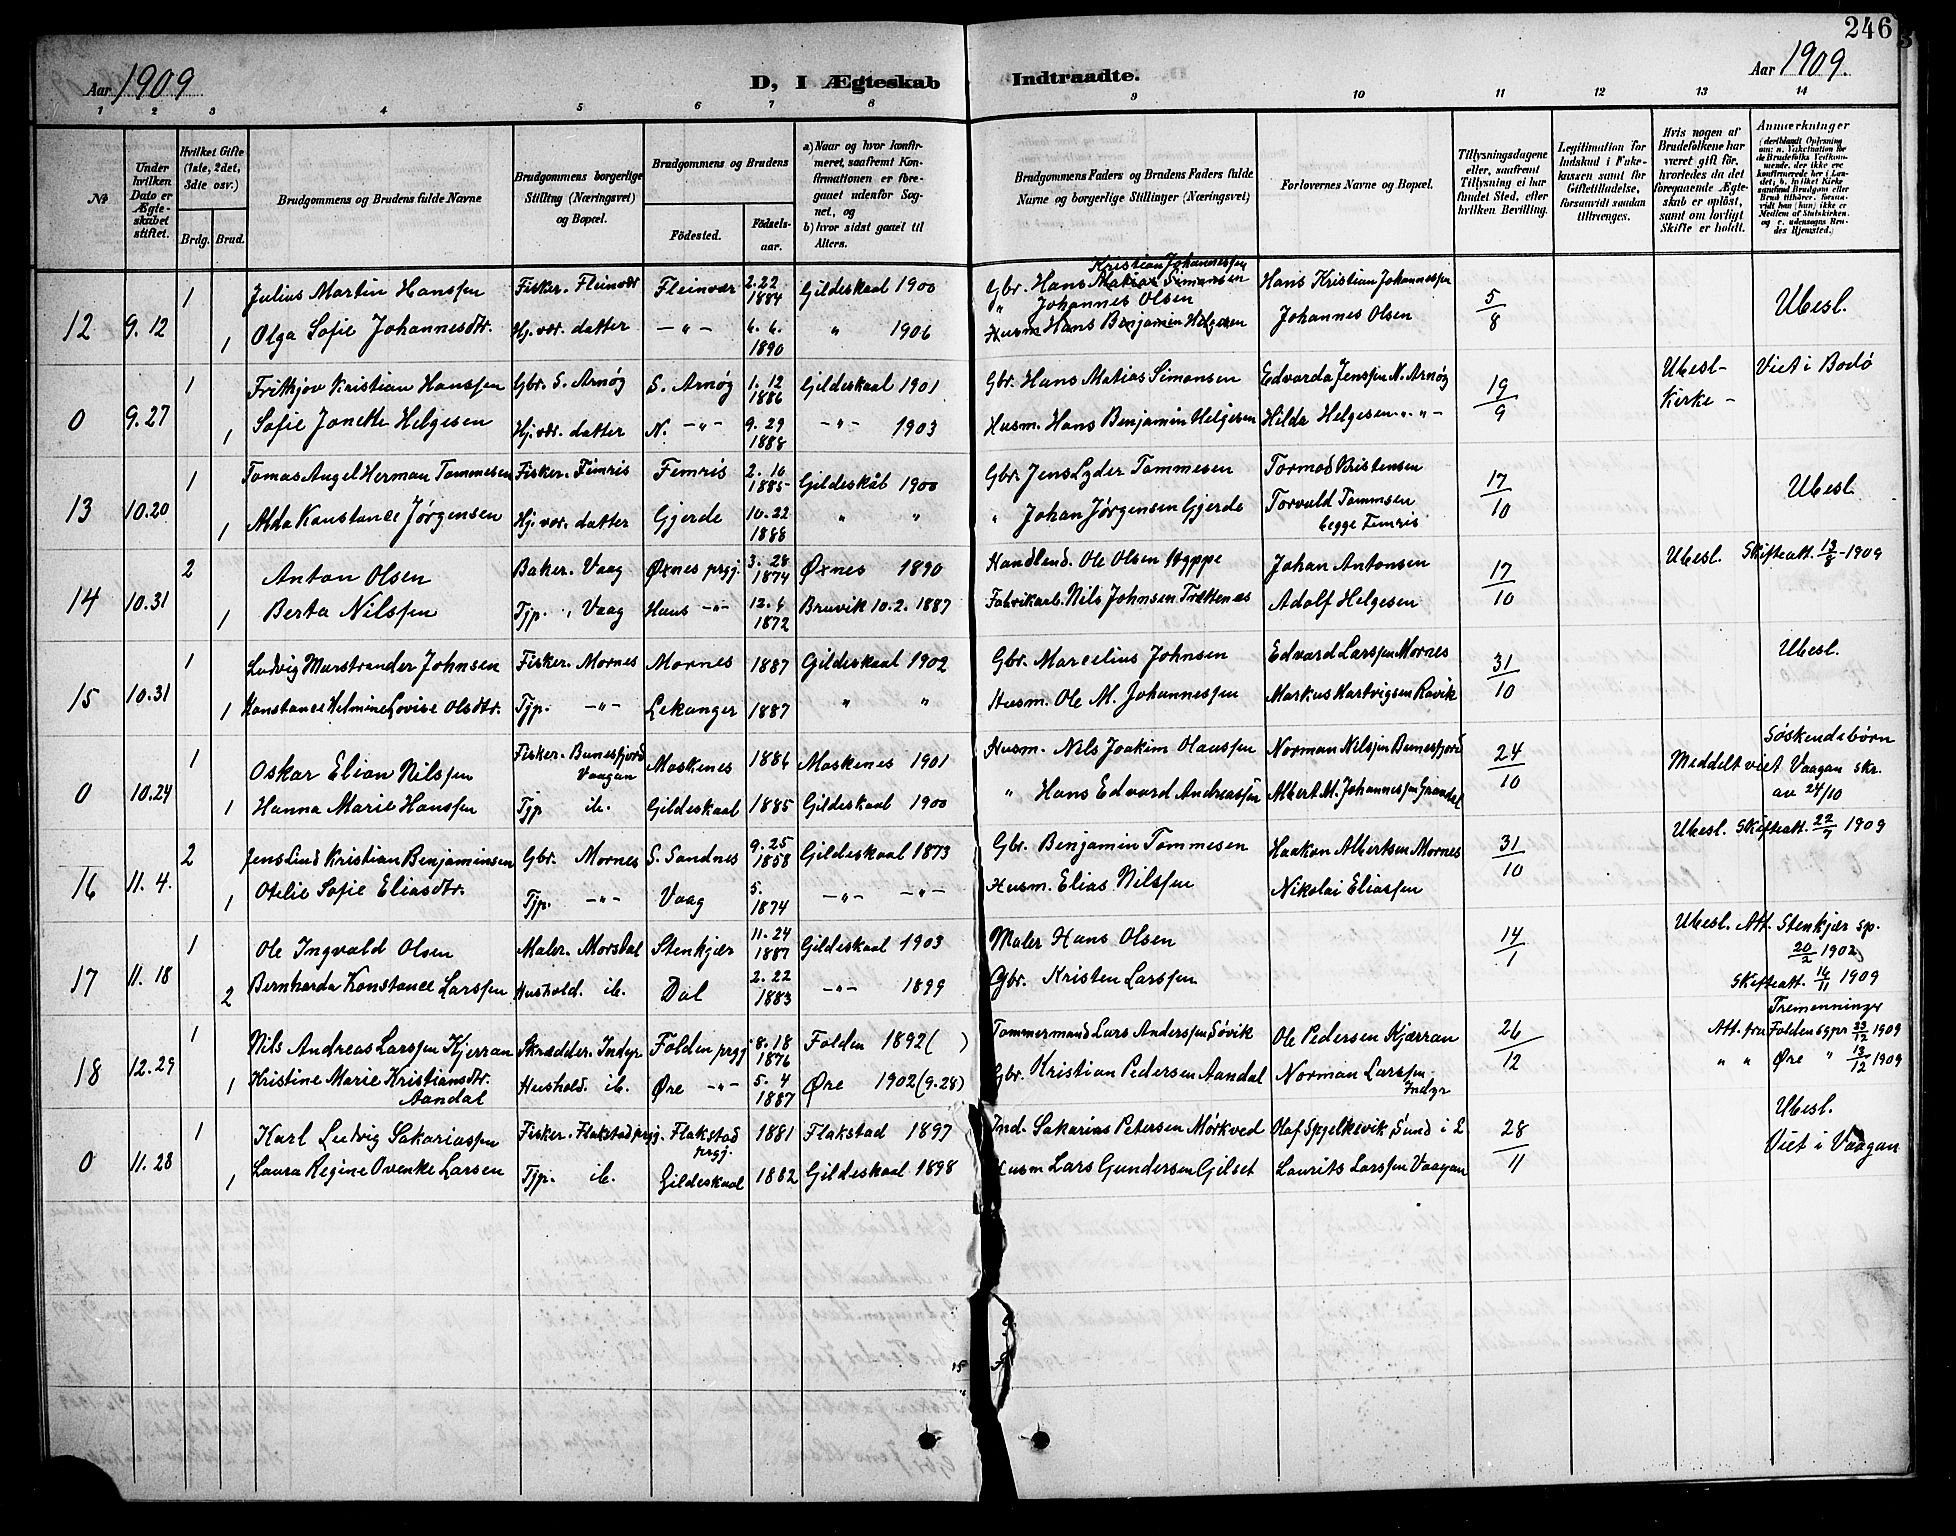 246
Aar 1909
D, I Ægteskab Indtraadte.
Aar 1909.
1 2 3 4 5 6 7 8 9 10 11 12 13 14
№
Under hvilken Dato er Ægteskabet stiftet.
Hvilket Gifte (1ste, 2det, 3die osv.)
Brdg. Brud.
Brudgommens og Brudens fulde Navne
Brudgommens borgerlige Stilling (Næringsvei) og Bopæl.
Brudgommens og Brudens
Födested. Födselsaar.
a) Naar og hvor konfirmeret, saafremt Konfirmationen er foregaaet udenfor Sognet, og
b) hvor sidst gaaet til Alters.
Brudgommens Faders og Brudens Faders fulde Navne og borgerlige Stillinger (Næringsvei)
Forlovernes Navne og Bopæl.
Tillysningsdagene eller, saafremt Tillysning ei har fundet Sted, efter hvilken Bevilling.
Legitimation for Indskud i Enkekassen samt for Giftetilladelse, forsaavidt saadan tiltrænges.
Hvis nogen af Brudefolkene har været gift för, hvorledes da det foregaaende Ægteskab er oplöst, samt om lovligt Skifte er holdt.
Anmærkninger (deriblandt Oplysning om: a. Vakcination for de Brudefolks Vedkommende, der ikke ere konfirmerede her i Landet; b. hvilket Kirkesamfund Brudgom eller Brud tilhörer, forsaavidt han (hun) ikke er Medlem af Statskirken, og c. udensogns Brudes Hjemsted.)
12 9.12 1 Julius Martin Hanssen Fisker. Fleinvær Fleinvær 2.22 1884 Gildeskaal 1900 Gbr. Hans Kristian Johannessen Matias Simonsen Hans Kristian Johannessen 5/8 Ubesl.
1 Olga Sofie Johannesdtr. Hj.vær. datter —"— 6.6. 1890 " 1906 " Johannes Olsen Husm. Hans Benjamin Helgesen Johannes Olsen
0 9.27 1 Frithjov Kristian Hanssen Gbr. S. Arnøy S. Arnøy 1.12 1886 Gildeskaal 1901 Gbr. Hans Matias Simonsen Edvarda Jenssen N. Arnøy 19/9 Ubesl— Kirke — Viet i Bodø
1 Sofie Janette Helgesen Hj.vær. datter N. —"— 9.29 1888 —"— 1903 Husm. Hans Benjamin Helgesen Hilda Helgesen " " —
13 10.20 1 Tomas Angel Herman Tommesen Fisker. Femris Femris 2.10 1885 Gildeskål 1900 Gbr. Jens Lyder Tommesen Tormod Kristensen 17/10 Ubesl.
1 Alda Konstance Jørgensen Hj.vær. datter Gjerde 10.22 1888 " " " Johan Jørgensen Gjerde Torvald Tommsen begge Femris
14 10.31 2 Anton Olsen Baker. Vaag Øxnes prgj. 3.28 1874 Øxnes 1890 Handlend. Ole Olsen Johan Antonsen 17/10 Ubesl. Skifteatt. 13/8-1909
1 Berta Nilssen Tjp. " Vaag Haus —"— 12.4 1872 Bruvik 10.2.1887 Fabrikarb. Nils Johnsen Trættenes Adolf Helgesen
15 10.31 1 Ludvig Marstrander Johnsen Fisker. Mornes Mornes 1887 Gildeskaal 1902 Gbr. Marcelius Johnsen Edvard Larssen Mornes 31/10 Ubesl.
1 Konstance Helmine Lovise Olsdtr. Tjp. —"— Lekanger 1887 " " Husm. Ole M. Johannessen Markus Hartvigsen Ravik
0 10.24 1 Oskar Elian Nilssen Fisker. Bunesfjord Vaagan Moskenes 1886 Moskenes 1901 Husm. Nils Joakim Hanssen Norman Nilssen Bunesfjord 24/10 Søskendebørn Meddelt viet Vaagan skr. av 24/10
1 Hanna Marie Hanssen Tjp ib. Gildeskaal 1885 Gildeskaal 1900 " Hans Edvard Andreassen Albert M. Johannessen
16 11.4. 2 Jens Lind Kristian Benjaminsen Gbr. Mornes S. Sandnes 9.25 1858 Gildeskaal 1873 Gbr. Benjamin Tommesen Haakon Albertsen Mornes 31/10 Ubesl. Skifteatt. 22/7 1909
1 Otelie Sofie Eliasdtr. Tjp. —"— Vaag 5. 1874 —"— —"— Husm. Elias Nilssen Nikolai Eliassen
17 11.18 1 Ole Ingvald Olsen Maler. Morsdal Stenkjær 11.24 1887 Gildeskaal 1903 Maler Hans Olsen 14/1 Ubesl. Att. Stenkjær sp. 20/2 1902
2 Bernharda Konstance Larssen Hushold. ib. Dal 2.22 1883 —"— 1899 Gbr. Kristen Larssen Skifteatt. 16/11 1909
18 12.29 1 Nils Andreas Larssen Kjerran Skrædder. Indyr Folden prgj. 8.18 1876 Folden 1892 ( ) Tømmermand Lars Anderssen Søvik Ole Pedersen Kjærran 26/12 Tremenninger Att. fra Folden sgpr 23/12 1909
1 Kristine Marie Kristiansdtr. Aandal Hushold. ib. Øre —"— 5.4 1887 Øre 1902 (9.28) Gbr. Kristian Pedersen Aandal Norman Larssen Indyr " " Øre " 13/12 1909
0 11.28 1 Karl Ludvig Sakariassen Fisker. Flakstad prgj. Flakstad prgj. 1881 Flakstad 1897 Ind. Sakarias Petersen Mørkved Olaf Spjelkevik, Sund i L 28/11 Ubesl. Viet i Vaagan
1 Laura Regine Ovenke Larsen Tjp. ib. Gildeskaal 1882 Gildeskaal 1898 Husm Lars Gundersen Gilset Laurits Larssen Vaagan